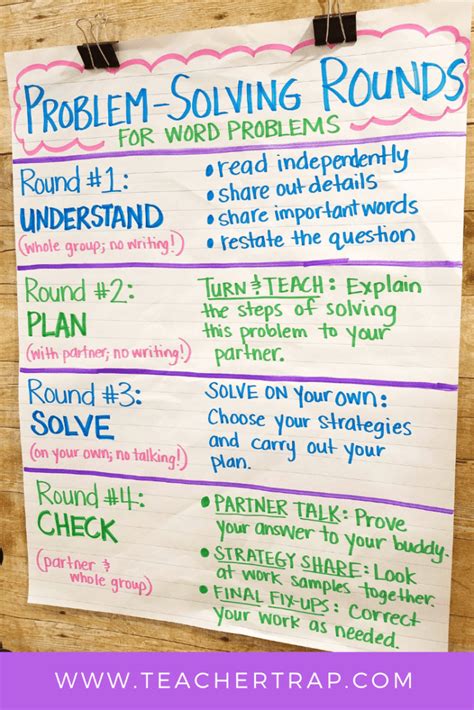 PROBLEM-SOLVING ROUNDS
FOR WORD PROBLEMS
Round #1:
UNDERSTAND
(whole group; no writing!)
• read independently
• share out details
• share important words
• restate the question
Round #2:
PLAN
(with partner; no writing!)
TURN & TEACH: Explain
the steps of solving
this problem to your
partner.
Round #3:
SOLVE
(on your own; no talking!)
SOLVE ON YOUR OWN:
Choose your strategies
and carry out your
plan.
Round #4:
CHECK
(partner &
whole group)
• PARTNER TALK: Prove
your answer to your buddy.
• STRATEGY SHARE: Look
at work samples together.
• FINAL FIX-UPS: Correct
your work as needed.
WWW.TEACHERTRAP.COM